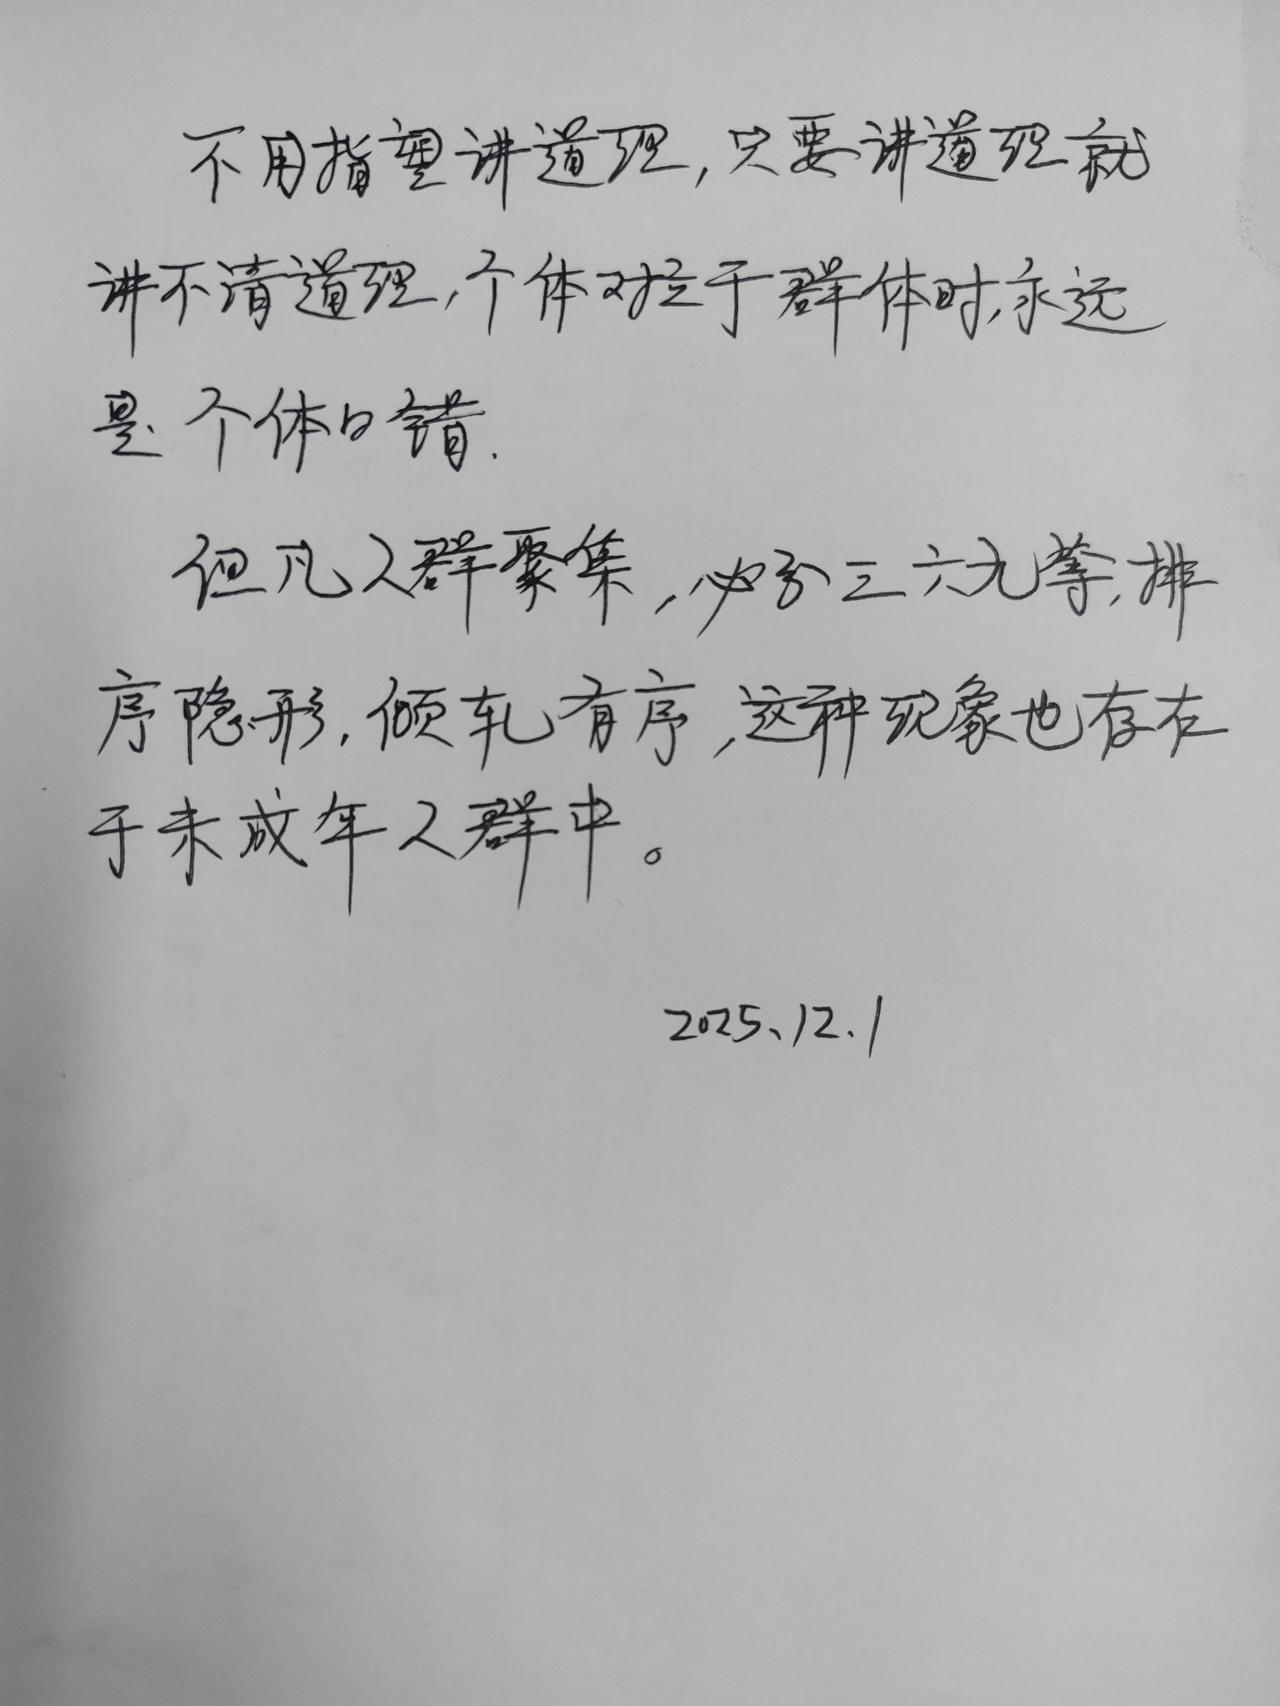 不用指望讲道理,只要讲道理就
讲不清道理,个体对立于群体时,永远
是个体的错.
但凡人群聚集,必分三六九等,排
序隐形,倾轧有序,这种现象也存在
于未成年人群中。
2025、12、1